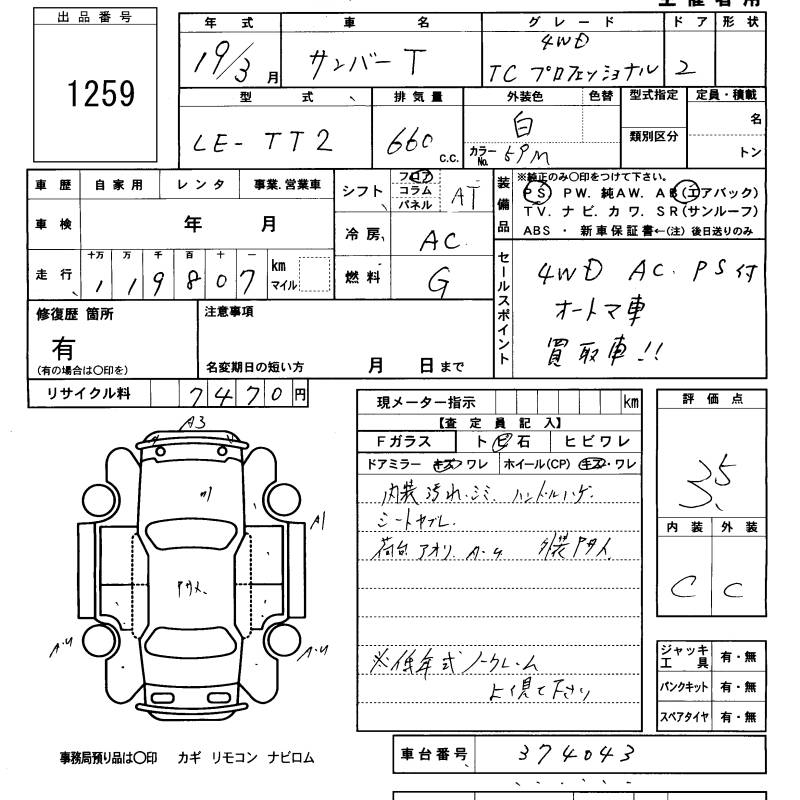 出品番号
1259
年式 車名 グレード ドア 形状
19/3月 サンバーT 4WD
TC プロフェッショナル 2
型式 排気量 外装色 色替 型式指定 定員・積載
LE-TT2 660 c.c. 白 類別区分 名
カラーNo. 59M トン
車歴 自家用 レンタ 事業.営業車
車検 年 月
走行 十万 万 千 百 十 一
1 1 9 8 0 7 km マイル
シフト フロア コラム パネル AT
冷房 AC
燃料 G
装備品 ※純正のみ〇印をつけて下さい。
PS PW. 純AW. AB(エアバック)
TV. ナビ. カワ. SR(サンルーフ)
ABS ・ 新車保証書←(注) 後日送りのみ
セールスポイント
4WD AC. PS付
オートマ車
買取車!!
修復歴 箇所
有
(有の場合は〇印を)
注意事項
名変期日の短い方 月 日まで
リサイクル料 7470円
現メーター指示 km
【査定員記入】
Fガラス トビ石 ヒビワレ
ドアミラー キズ ワレ ホイール(CP) キズ・ワレ
内装汚れ.シミ. ハンドルハゲ.
シートヤブレ.
荷台アオリ A-U
※低年式ノークレーム
よく見て下さい
評価点
3.5
内装 外装
C C
A3
A1
A-U
A-U
ジャッキ工具 有・無
パンクキット 有・無
スペアタイヤ 有・無
事務局預り品は〇印 カギ リモコン ナビロム
車台番号 374043